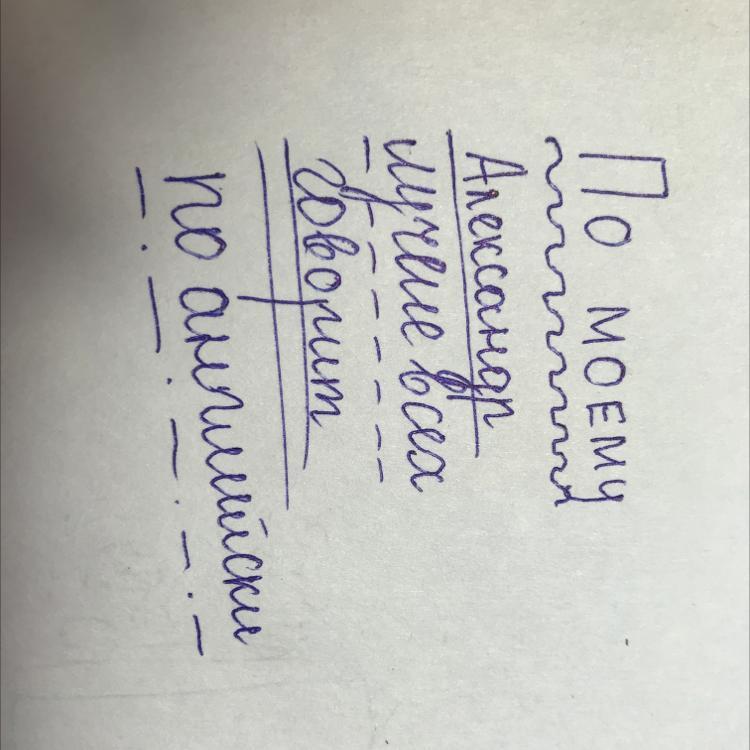 По моему
Александр
лучше всех
говорит
по английски